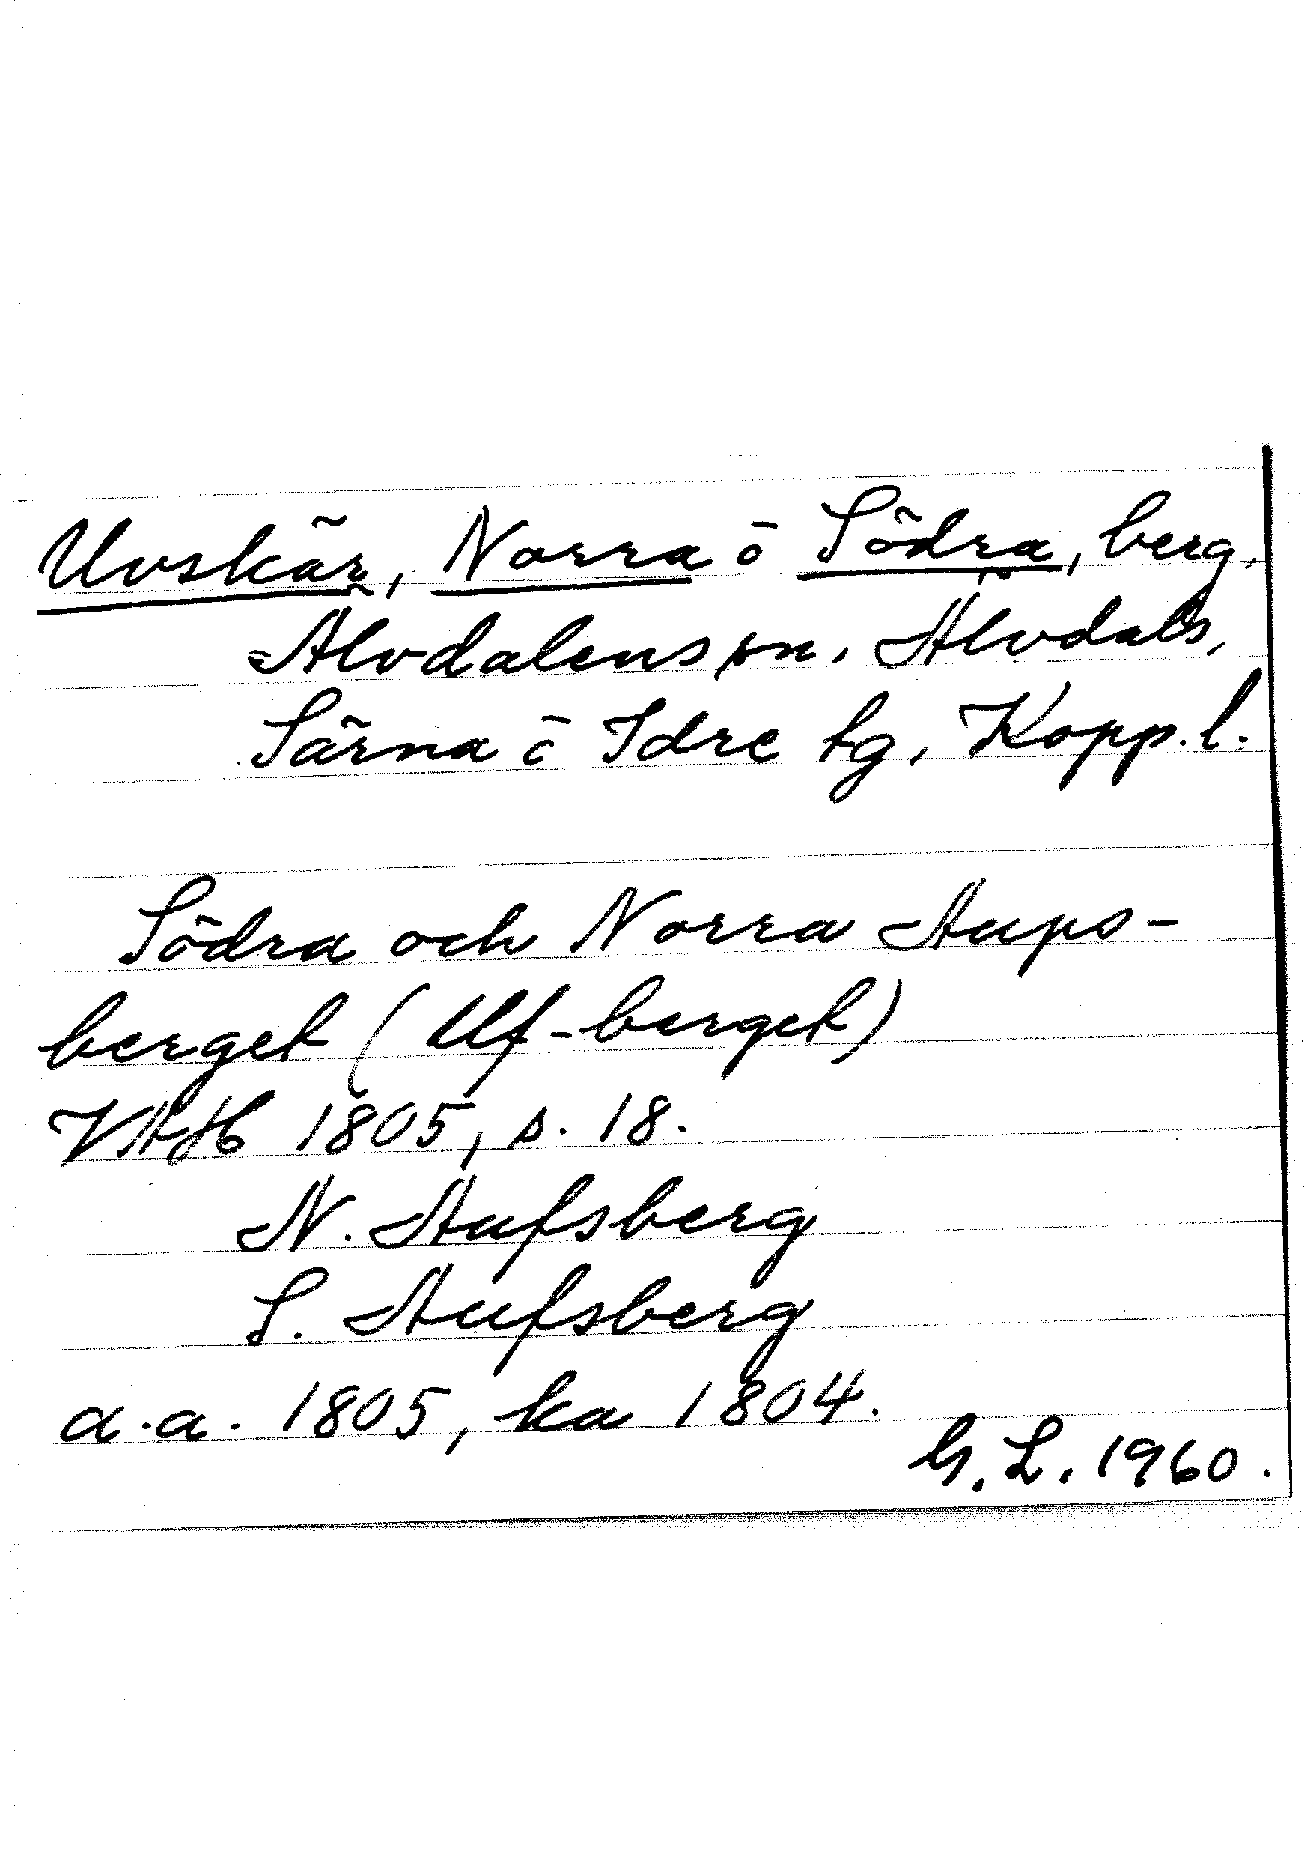 Uvskär, Norra o Södra, berg,
Älvdalens sn. Älvdals,
Särna o Idre tg, Kopp. l.
Södra och Norra Aups-
berget (Uf-berget)
VAH 1805, s. 18.
N. Aufsberg
S. Aufsberg
a.a. 1805, ka 1804.
G. L. 1960.